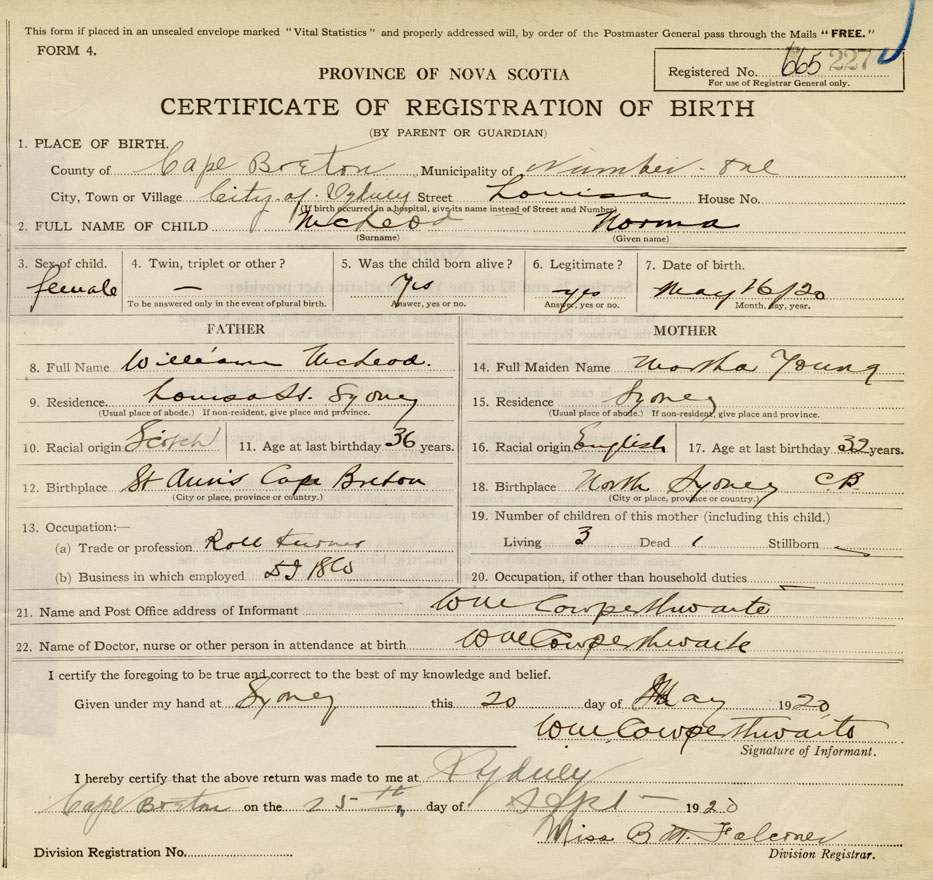 This form if placed in an unsealed envelope marked "Vital Statistics" and properly addressed will, by order of the Postmaster General pass through the Mails "FREE."
FORM 4.
PROVINCE OF NOVA SCOTIA
Registered No. 665 227
For use of Registrar General only.
CERTIFICATE OF REGISTRATION OF BIRTH
(BY PARENT OR GUARDIAN)
1. PLACE OF BIRTH.
County of Cape Breton Municipality of Number one
City, Town or Village City of Sydney Street Louisa House No.
(If birth occurred in a hospital, give its name instead of Street and Number)
2. FULL NAME OF CHILD McLeod Norma
(Surname) (Given name)
3. Sex of child. 4. Twin, triplet or other? 5. Was the child born alive? 6. Legitimate? 7. Date of birth.
female — Yes yes May 16/20
To be answered only in the event of plural birth. Answer, yes or no. Answer, yes or no. Month, day, year.
FATHER MOTHER
8. Full Name William McLeod. 14. Full Maiden Name Martha Young
9. Residence. Louisa St. Sydney 15. Residence Sydney
(Usual place of abode.) If non-resident, give place and province. (Usual place of abode.) If non-resident, give place and province.
10. Racial origin Scotch 11. Age at last birthday 36 years. 16. Racial origin English 17. Age at last birthday 32 years.
12. Birthplace St Anns Cape Breton 18. Birthplace North Sydney CB
(City or place, province or country.) (City or place, province or country.)
13. Occupation:— 19. Number of children of this mother (including this child.)
(a) Trade or profession Roll turner Living 3 Dead 1 Stillborn
(b) Business in which employed 20. Occupation, if other than household duties
21. Name and Post Office address of Informant Wm Cowperthwaite
22. Name of Doctor, nurse or other person in attendance at birth Wm Cowperthwaite
I certify the foregoing to be true and correct to the best of my knowledge and belief.
Given under my hand at Sydney this 20 day of May 1920
Wm Cowperthwaite
Signature of Informant.
I hereby certify that the above return was made to me at Sydney
Cape Breton on the 25th, day of Sept 1920
Miss B M. Falconer
Division Registration No. Division Registrar.